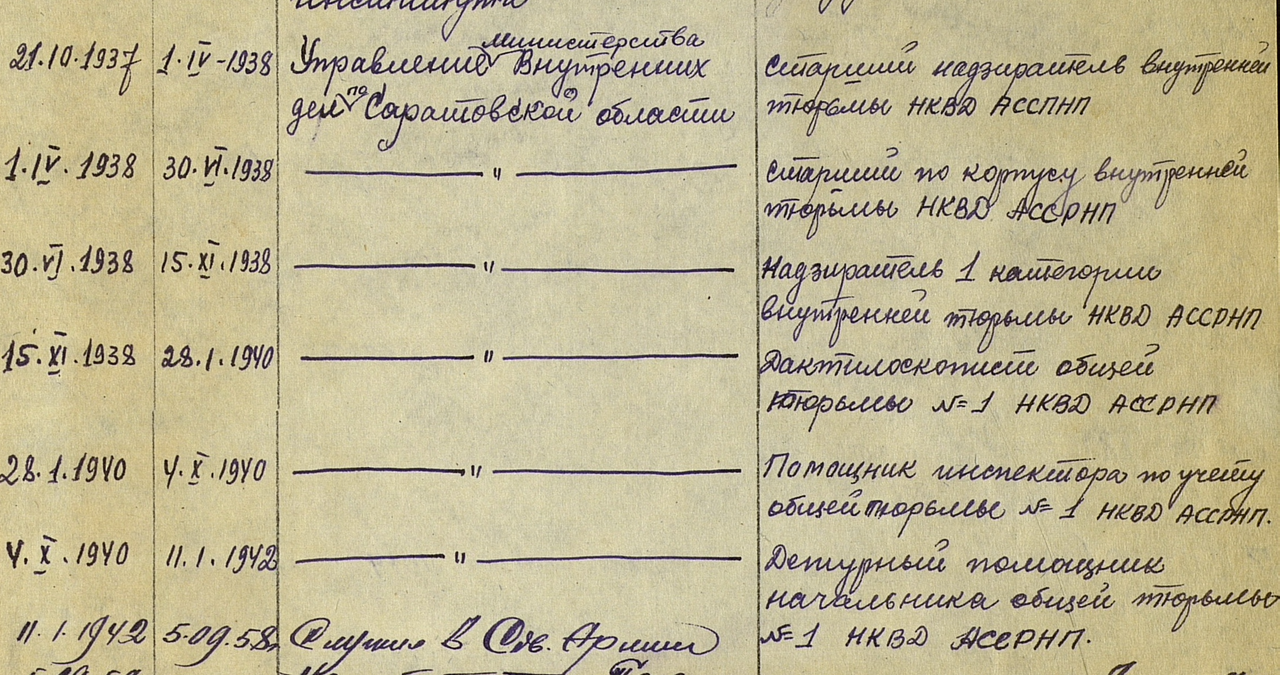 института
министерства
21.10.1937 1.IV-1938 Управление Внутренних старший надзиратель внутренней
дел по Саратовской области тюрьмы НКВД АССПНП
1.IV.1938 30.VI.1938 —— " —— старший по корпусу внутренней
тюрьмы НКВД АССРНП
30.VI.1938 15.XI.1938 —— " —— Надзиратель 1 категории
внутренней тюрьмы НКВД АССРНП
15.XI.1938 28.1.1940 —— " —— Дактилоскопист общей
тюрьмы №1 НКВД АССРНП
28.1.1940 4.X.1940 —— " —— Помощник инспектора по учету
общей тюрьмы №1 НКВД АССРНП.
4.X.1940 11.1.1942 —— " —— Дежурный помощник
начальника общей тюрьмы
11.1.1942 5.09.58 Служил в Сов. Армии №1 НКВД АССРНП.